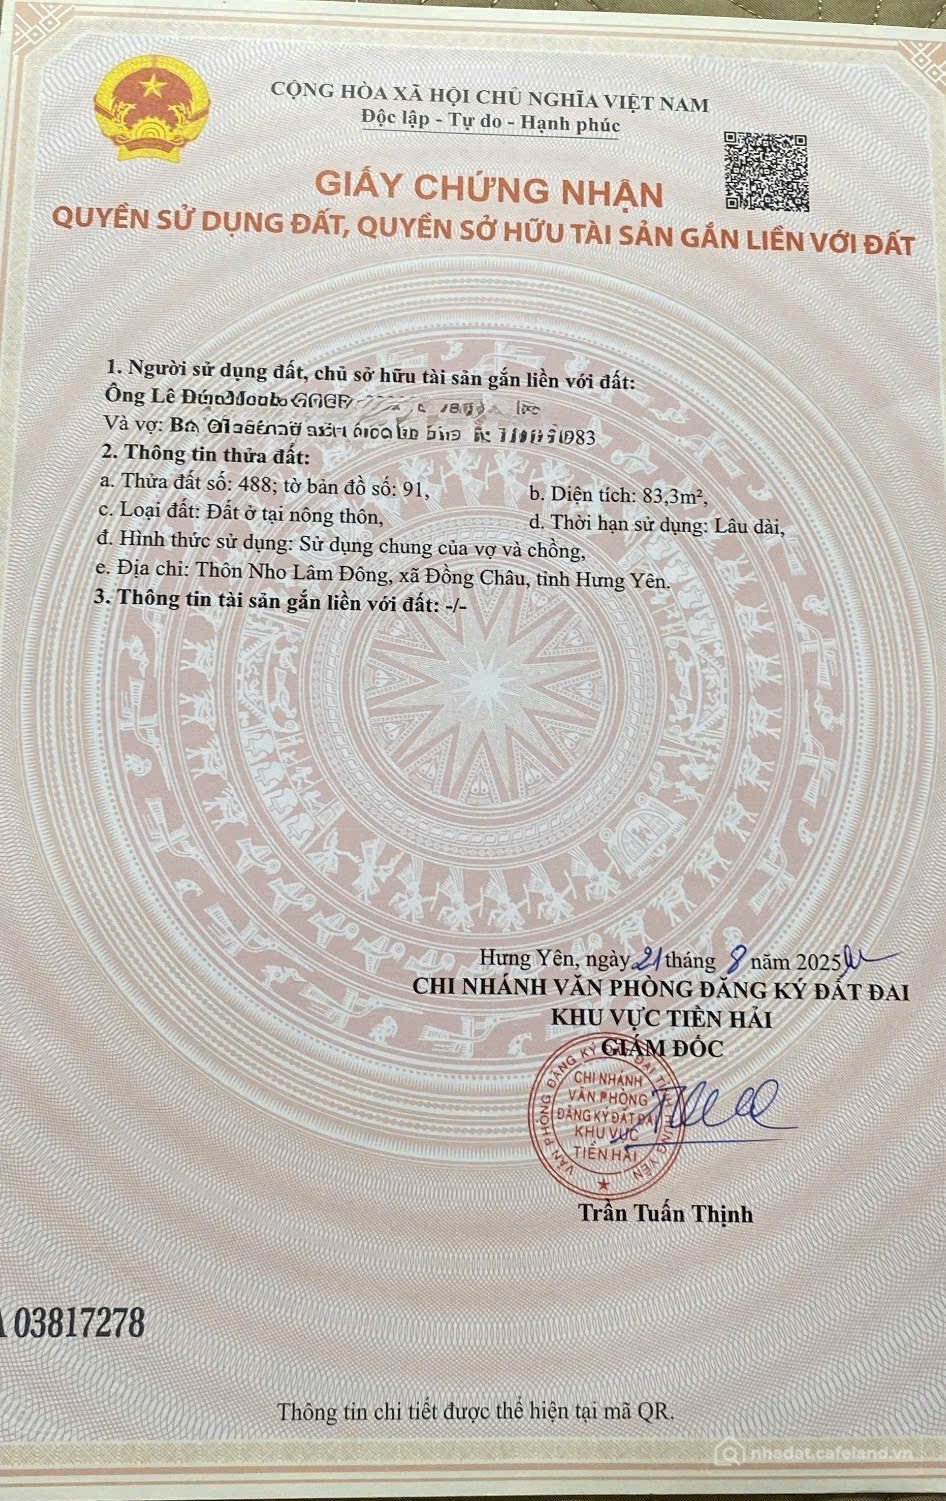 CỘNG HÒA XÃ HỘI CHỦ NGHĨA VIỆT NAM
Độc lập - Tự do - Hạnh phúc
GIẤY CHỨNG NHẬN
QUYỀN SỬ DỤNG ĐẤT, QUYỀN SỞ HỮU TÀI SẢN GẮN LIỀN VỚI ĐẤT
1. Người sử dụng đất, chủ sở hữu tài sản gắn liền với đất:
Ông Lê
Và vợ:
2. Thông tin thửa đất:
a. Thửa đất số: 488; tờ bản đồ số: 91, b. Diện tích: 83,3m²,
c. Loại đất: Đất ở tại nông thôn, d. Thời hạn sử dụng: Lâu dài,
đ. Hình thức sử dụng: Sử dụng chung của vợ và chồng,
e. Địa chỉ: Thôn Nho Lâm Đông, xã Đồng Châu, tỉnh Hưng Yên.
3. Thông tin tài sản gắn liền với đất: -/-
Hưng Yên, ngày 21 tháng 8 năm 2025
CHI NHÁNH VĂN PHÒNG ĐĂNG KÝ ĐẤT ĐAI
KHU VỰC TIỀN HẢI
GIÁM ĐỐC
VĂN PHÒNG ĐĂNG KÝ ĐẤT ĐAI TỈNH HƯNG YÊN
CHI NHÁNH
VĂN PHÒNG
ĐĂNG KÝ ĐẤT ĐAI
KHU VỰC
TIỀN HẢI
Trần Tuấn Thịnh
03817278
Thông tin chi tiết được thể hiện tại mã QR.
nhadat.cafeland.vn